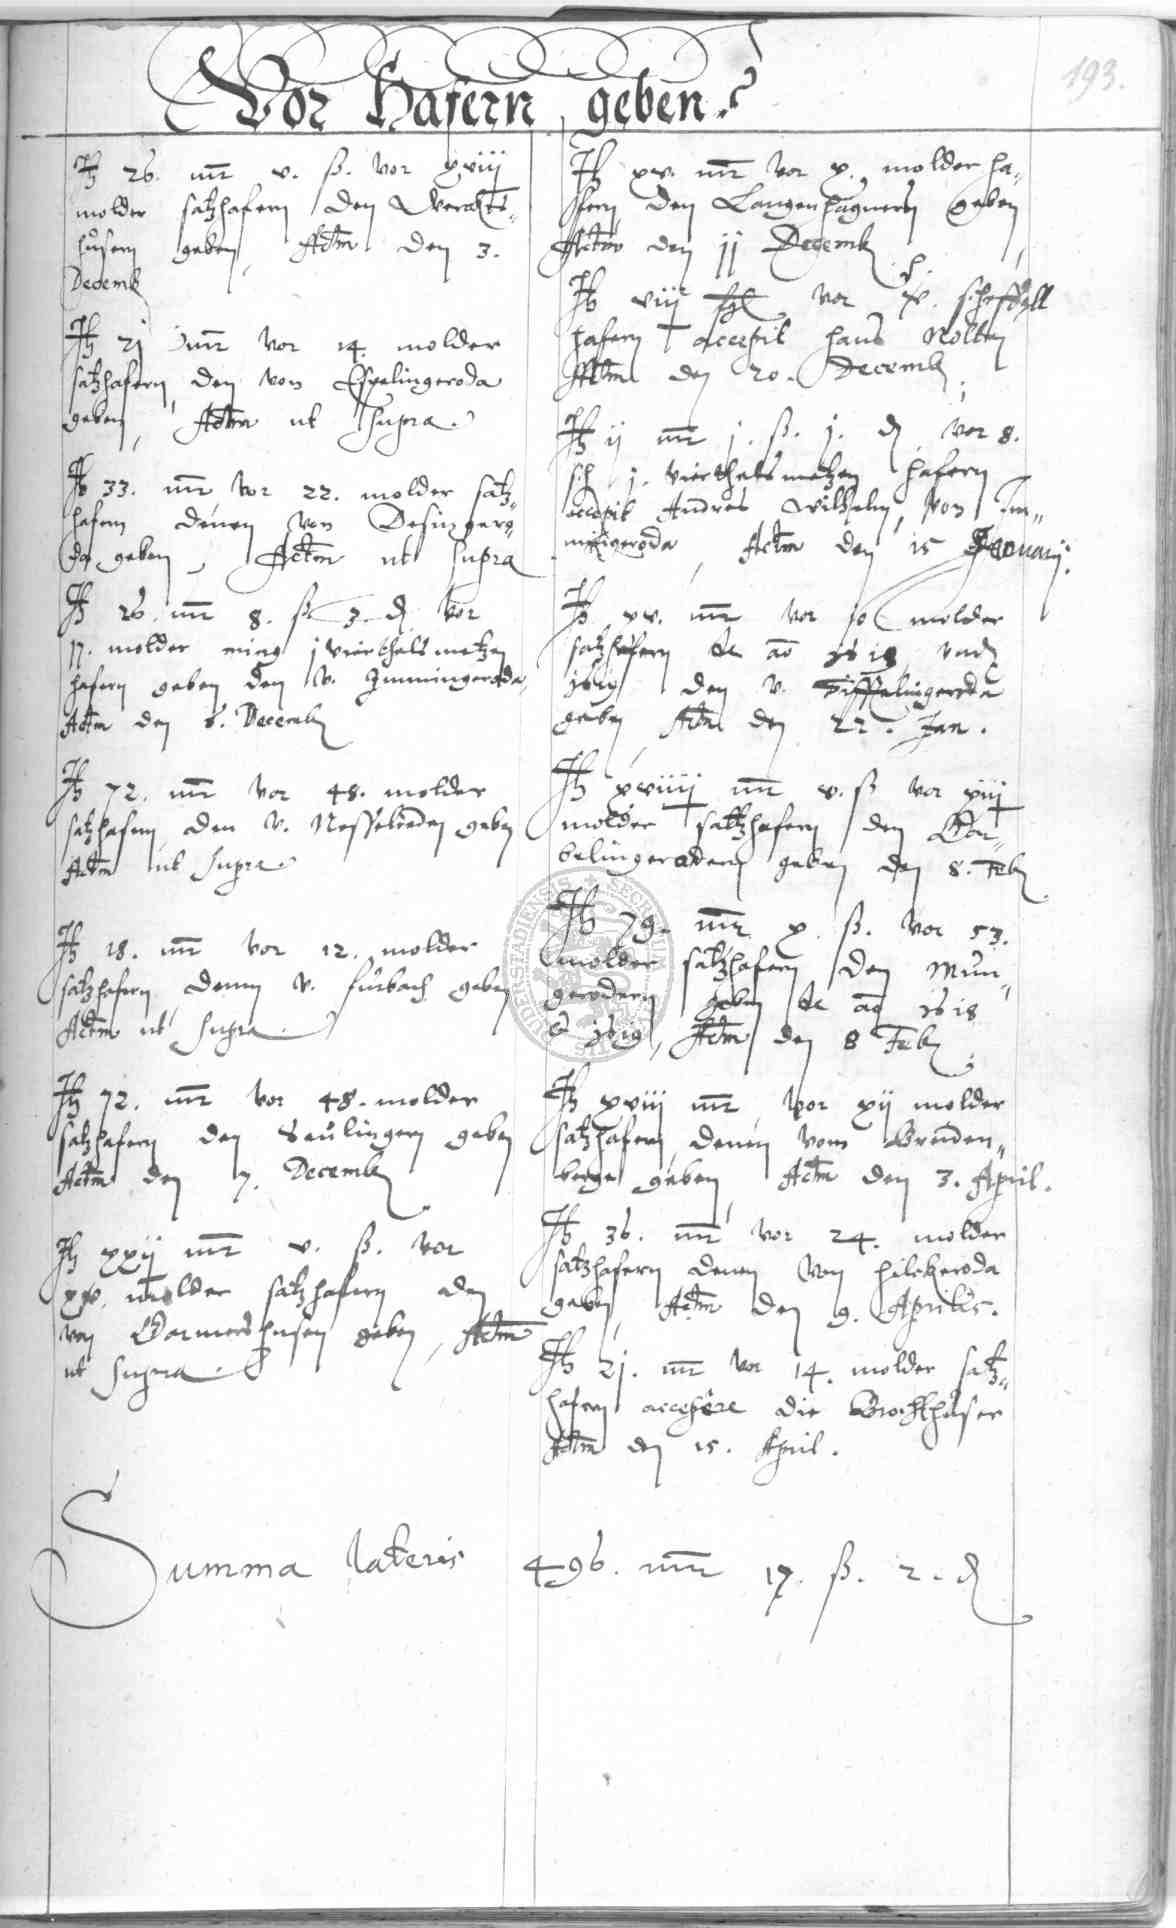 193.
Vor Hafern geben
It 26. mr v. ß. vor xviij
molder satzhafern den Weralts-
husern geben, Actm den 3.
Decemb
It 21 mr vor 14. molder
satzhafern den von Espelingeroda
geben, Actm ut supra.
It 33. mr vor 22. molder satz-
hafern denen von Desingero-
da geben, Actm ut supra
It 26. mr 8. ß 3 d. vor
17. molder minq j vierthels metzen
hafern geben den v. Immingeroda,
Actm den 6. Decemb
It 72. mr vor 48. molder
satzhafern den v. Nesselrieden geben
Actm ut supra.
It 18. mr vor 12. molder
satzhafern denen v. furbach geben
Actm ut supra.
It 72. mr vor 48. molder
satzhafern den Seulingern geben
Actm den 7. Decemb
It xxij mr v. ß. vor
xv. molder satzhafern den
von Germershusen geben, Actm
ut supra.
It xv. mr vor x. molder ha-
fern den Langenhagnern geben
Actm den 11 Decemb
It viij vor scheffell
hafern accepit hans Nolten
Actm den 20. Decemb
It ij mr j. ß. j. d vor 8.
sch j. vierthels metzen hafern
accepit Andres Wilhelm, von Im-
migeroda, Actm den 15 Januarij.
It xv. mr vor 10 molder
satzhafern de ao 1618 vnd
1619 den v. Tiftelingeroda
geben, Actm den 22. Jan.
It xviiij mr v. ß vor xiij
molder satzhafern den Ber-
belingerodern geben den 8. Feb
It 79. mr x. ß. vor 53.
molder satzhafern den Min-
gerodern geben de ao 1618
& 1619, Actm den 8 Feb
It xviij mr vor xij molder
satzhafern denen vom Breiden-
berge geben, Actm den 3. April.
It 36. mr vor 24. molder
satzhafern denen von hilckeroda
geben, Actm den 9. Aprilis.
It 21. mr vor 14. molder satz-
hafern accepere die Brochthuser
Actm den 15. April.
Summa lateris 496. mr 17. ß. 2. d